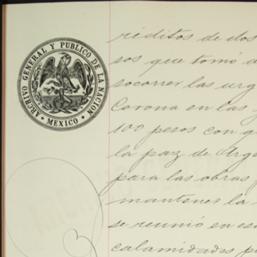 ARCHIVO GENERAL Y PUBLICO DE LA NACION
MEXICO
réditos de dos
sos que tomó a
socorrer las urg
Corona en las
100 pesos con q
la paz de Arge
para las obras
mantenes la
se reunió en es
calamidades p